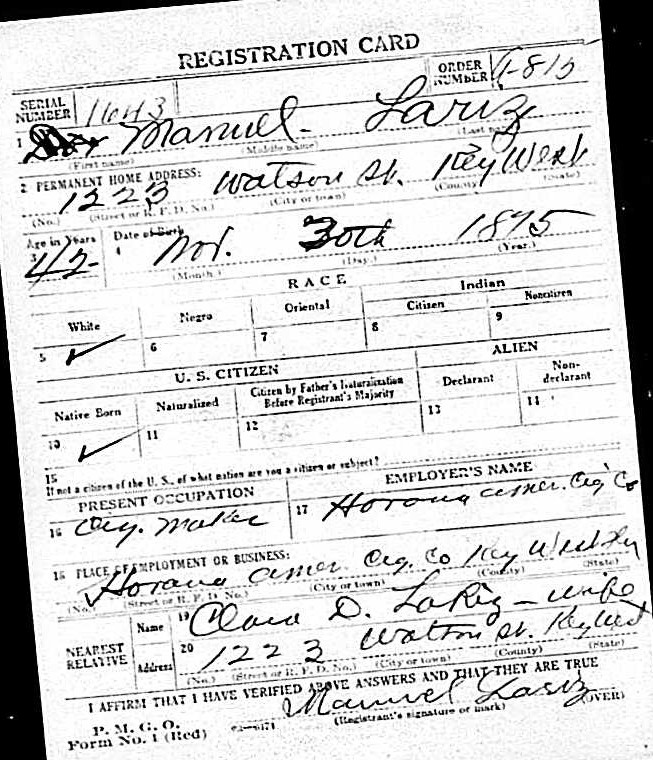 REGISTRATION CARD
SERIAL NUMBER 1643 ORDER NUMBER A-815
1 Manuel Lariz
(First name) (Middle name) (Last name)
2 PERMANENT HOME ADDRESS:
1223 Watson St. Key West
(No.) (Street or R. F. D. No.) (City or town) (County) (State)
Age in Years Date of Birth
3 42 4 Nov. 30th 1875
(Month.) (Day.) (Year.)
RACE
White Negro Oriental Indian
Citizen Noncitizen
5 ✓ 6 7 8 9
U. S. CITIZEN ALIEN
Native Born Naturalized Citizen by Father's Naturalization Before Registrant's Majority Declarant Non-declarant
10 ✓ 11 12 13 14
15
If not a citizen of the U. S., of what nation are you a citizen or subject?
PRESENT OCCUPATION EMPLOYER'S NAME
16 Cig. Maker 17 Havana Amer. Cig Co
18 PLACE OF EMPLOYMENT OR BUSINESS:
Havana Amer. Cig. Co Key West Fla
(No.) (Street or R. F. D. No.) (City or town) (County) (State)
NEAREST RELATIVE
Name 19 Clara D. Lariz - wife
Address 20 1223 Watson St. Key West
(No.) (Street or R. F. D. No.) (City or town) (County) (State)
I AFFIRM THAT I HAVE VERIFIED ABOVE ANSWERS AND THAT THEY ARE TRUE
P. M. G. O.
Form No. 1 (Red) Manuel Lariz
(Registrant's signature or mark) (OVER)